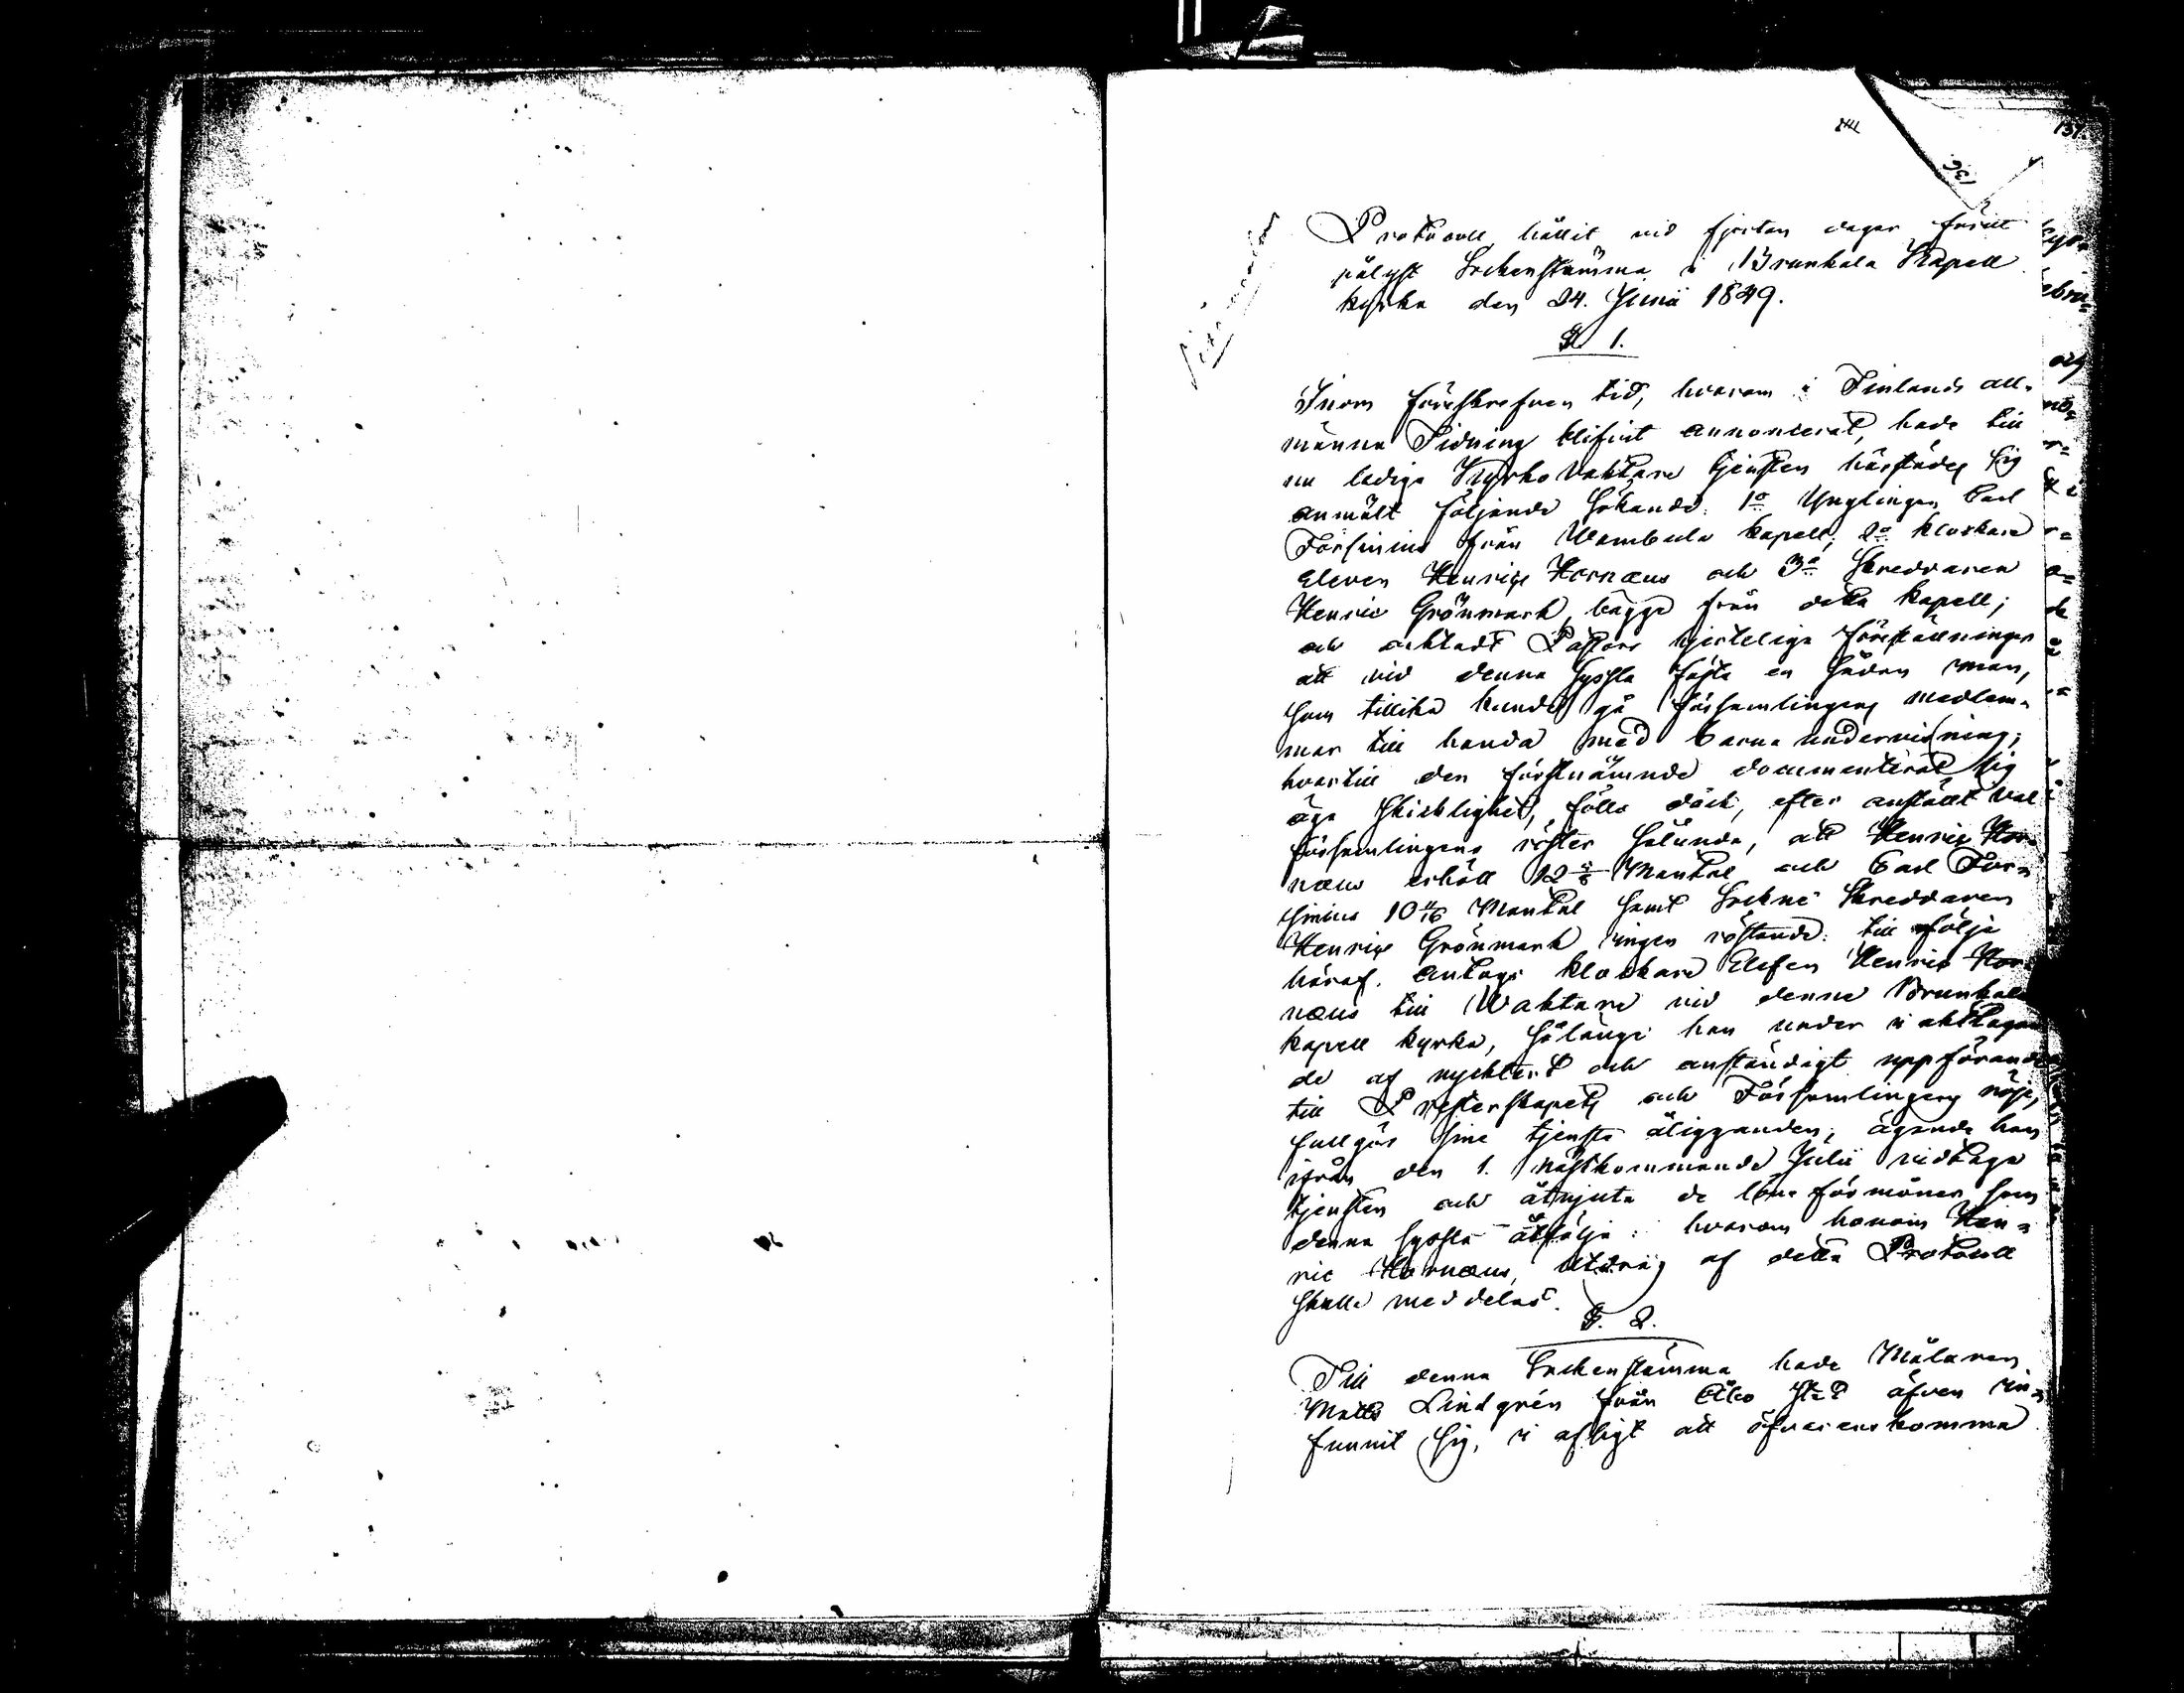 136
Protocoll, hållit vid fjorton dagar förut
pålyst Sockenstämma i Brunkala Kapell
kyrka den 24. Junii 1849.
§. 1.
Inom föreskrefven tid, hvarom i Finlands all-
männa Tidning blifvit annonceradt, hade till
nu lediga Kyrko Vaktare tjensten härstädes sig
anmält följande sökande: 1o Ynglingen Carl
Forsinius från Wambula kapell; 2o klockare
Eleven Henric Hornæus och 3o Skreddaren
Henric Grönmark, bägge från detta kapell;
och oaktadt Pastors hjertliga föreställningar
att vid denna syssla fästa en sådan man,
som tillika kunde gå församlingens medlem-
mar till handa med barna undervisning,
hvartill den förstnämnde documenterat sig
äga skicklighet, föllo dock, efter anstäldt val
församlingens röster sålunda, att Henric Hor-
næus erhöll 12 Mantal och Carl For-
sinius 10 Mantal samt Sockne Skreddaren
Henric Grönmark ingen röstande: till följe
häraf antogs klockare Elefen Henric Hor-
næus till Waktare vid denne Brunkala
kapell kyrka, sålänge han under iakttagan-
de af nycktert och anständigt uppförande
till Presterskapets och Församlingens nöje,
fullgör sine tjenste åligganden; ägande han
ifrån den 1. nästkommande Julii vidtaga
tjensten och åtnjuta de löne förmåner som
denna syssla åtfölja: hvarom honom Hen-
ric Hornæus, utdrag af detta Protocoll
skulle meddelas.
§. 2.
Till denna Sockenstämma hade Målaren
Matts Lindgrén från Åbo stad äfven in-
funnit sig, i afsigt att öfverenskomma